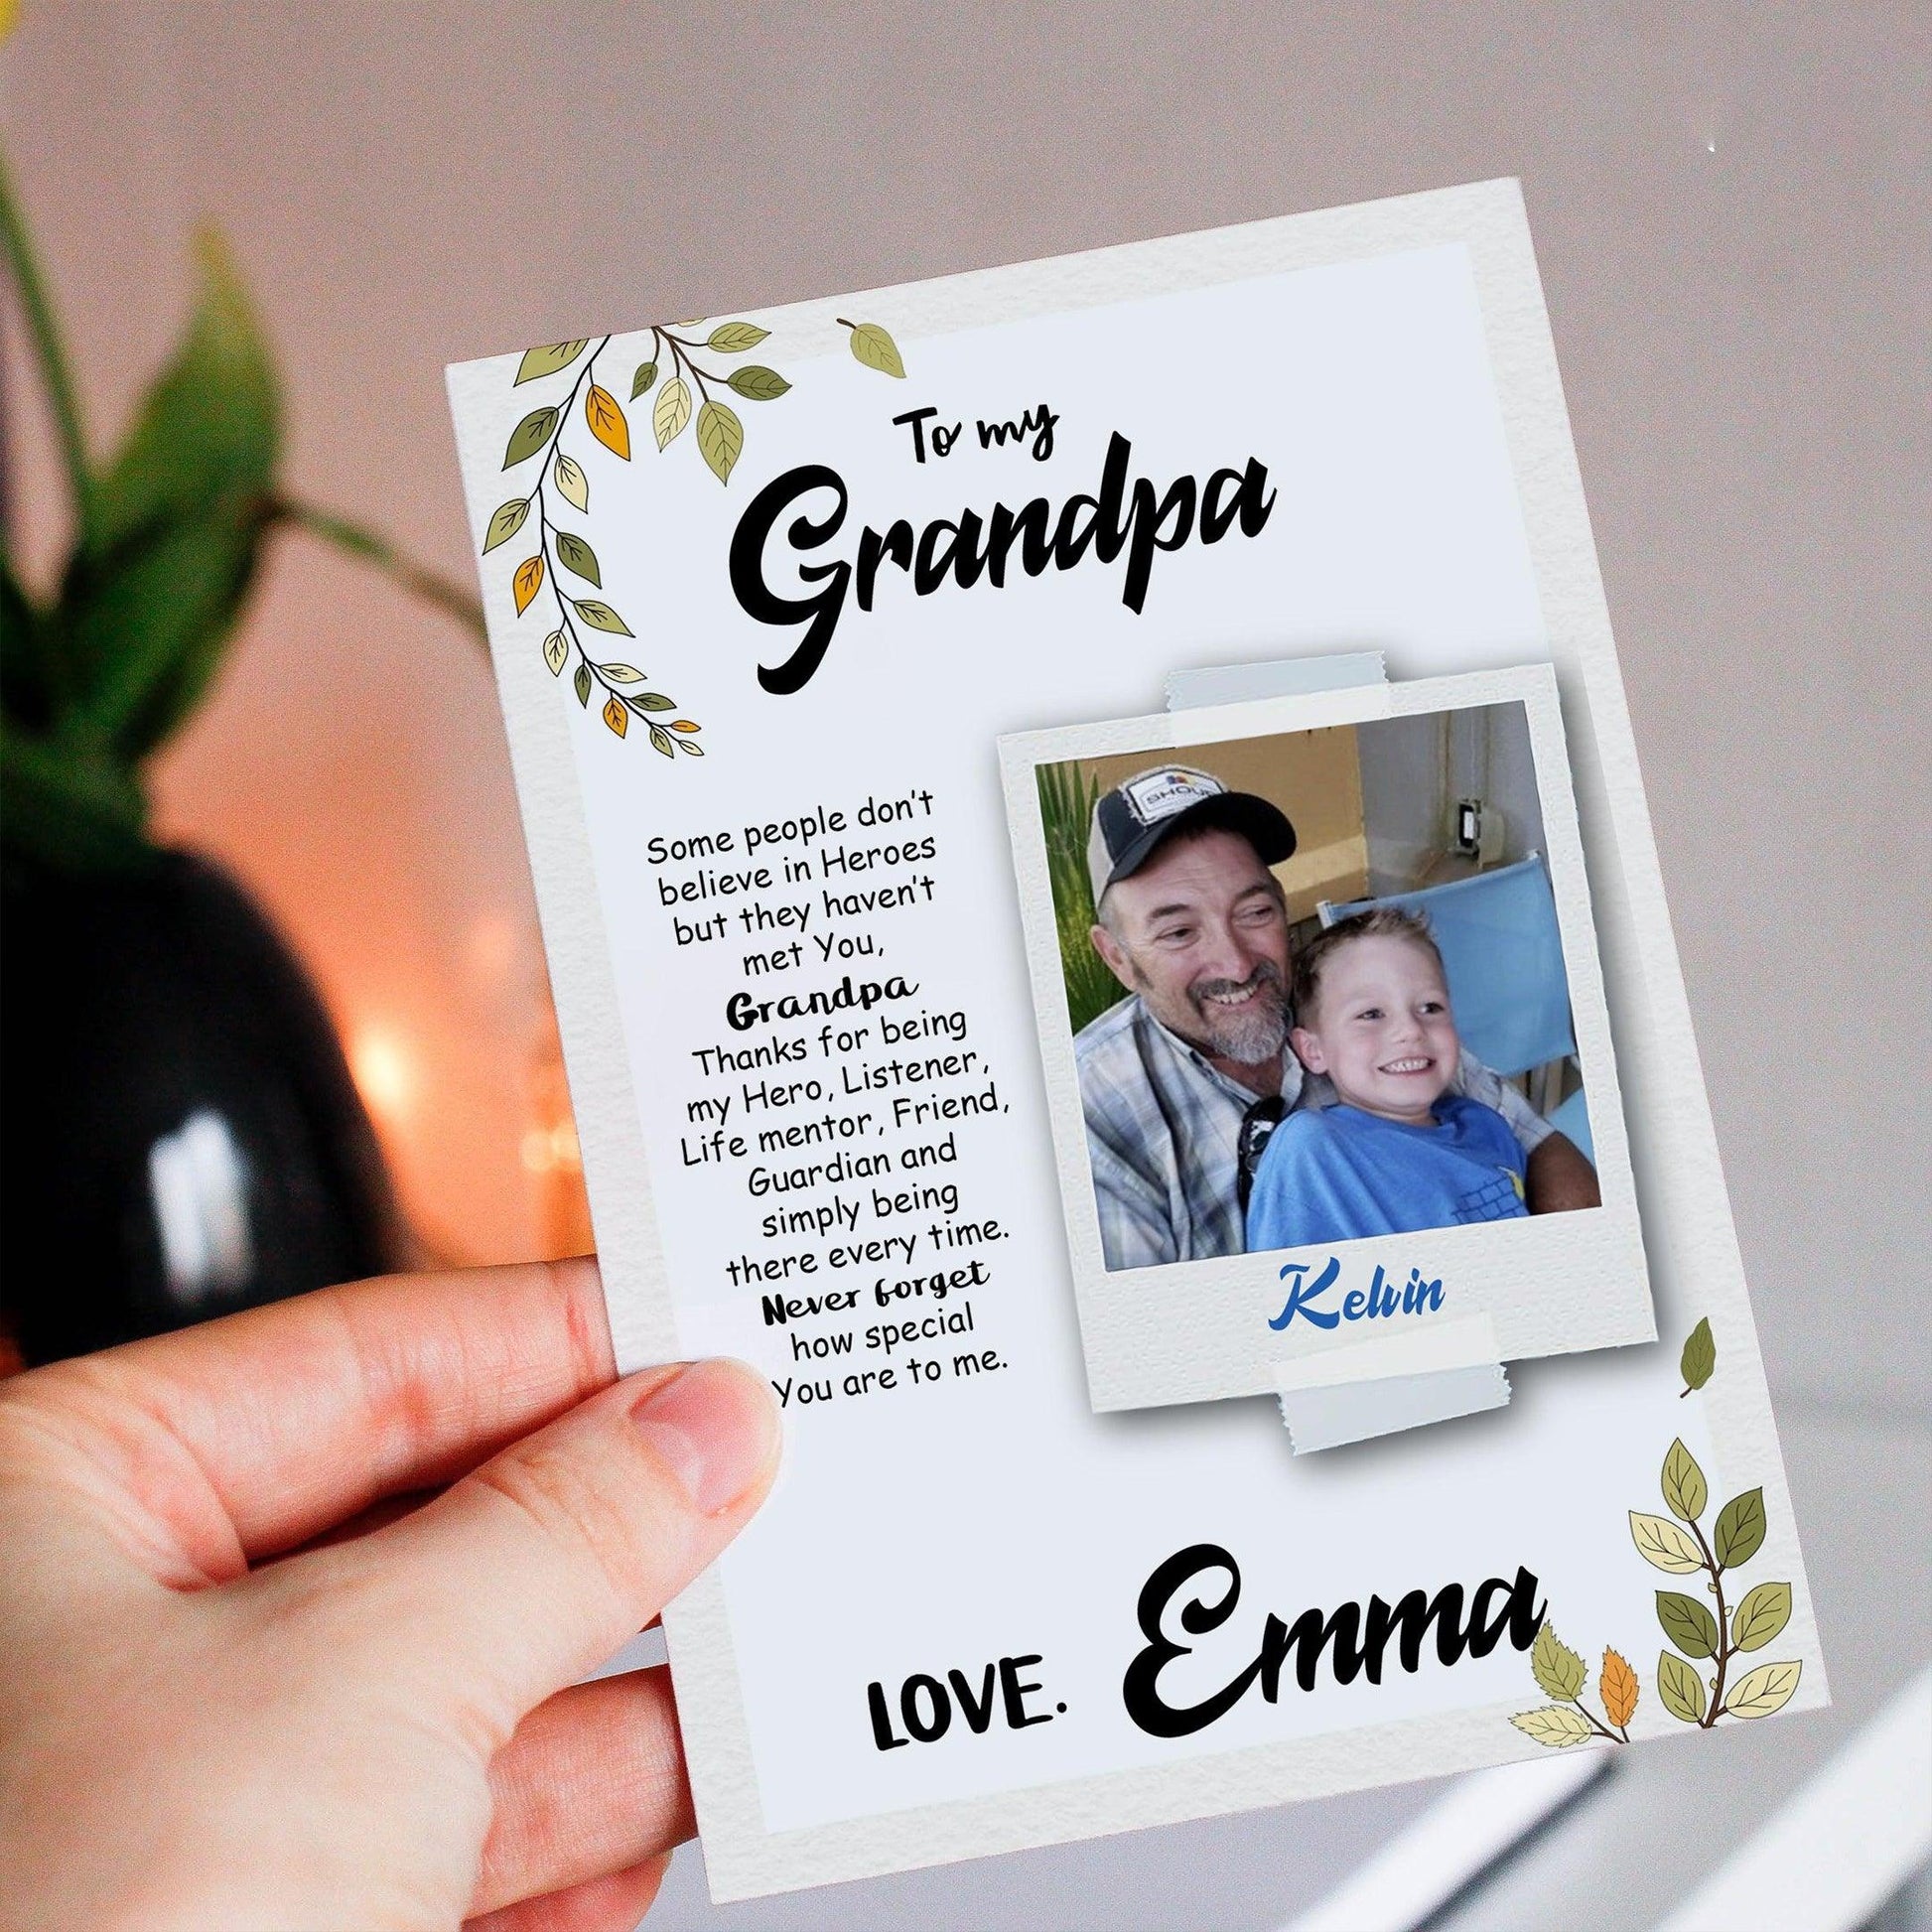 To my
Grandpa
Some people don't
believe in Heroes
but they haven't
met You,
Grandpa
Thanks for being
my Hero, Listener,
Life mentor, Friend,
Guardian and
simply being
there every time.
Never forget
how special
You are to me.
Kelvin
LOVE. Emma